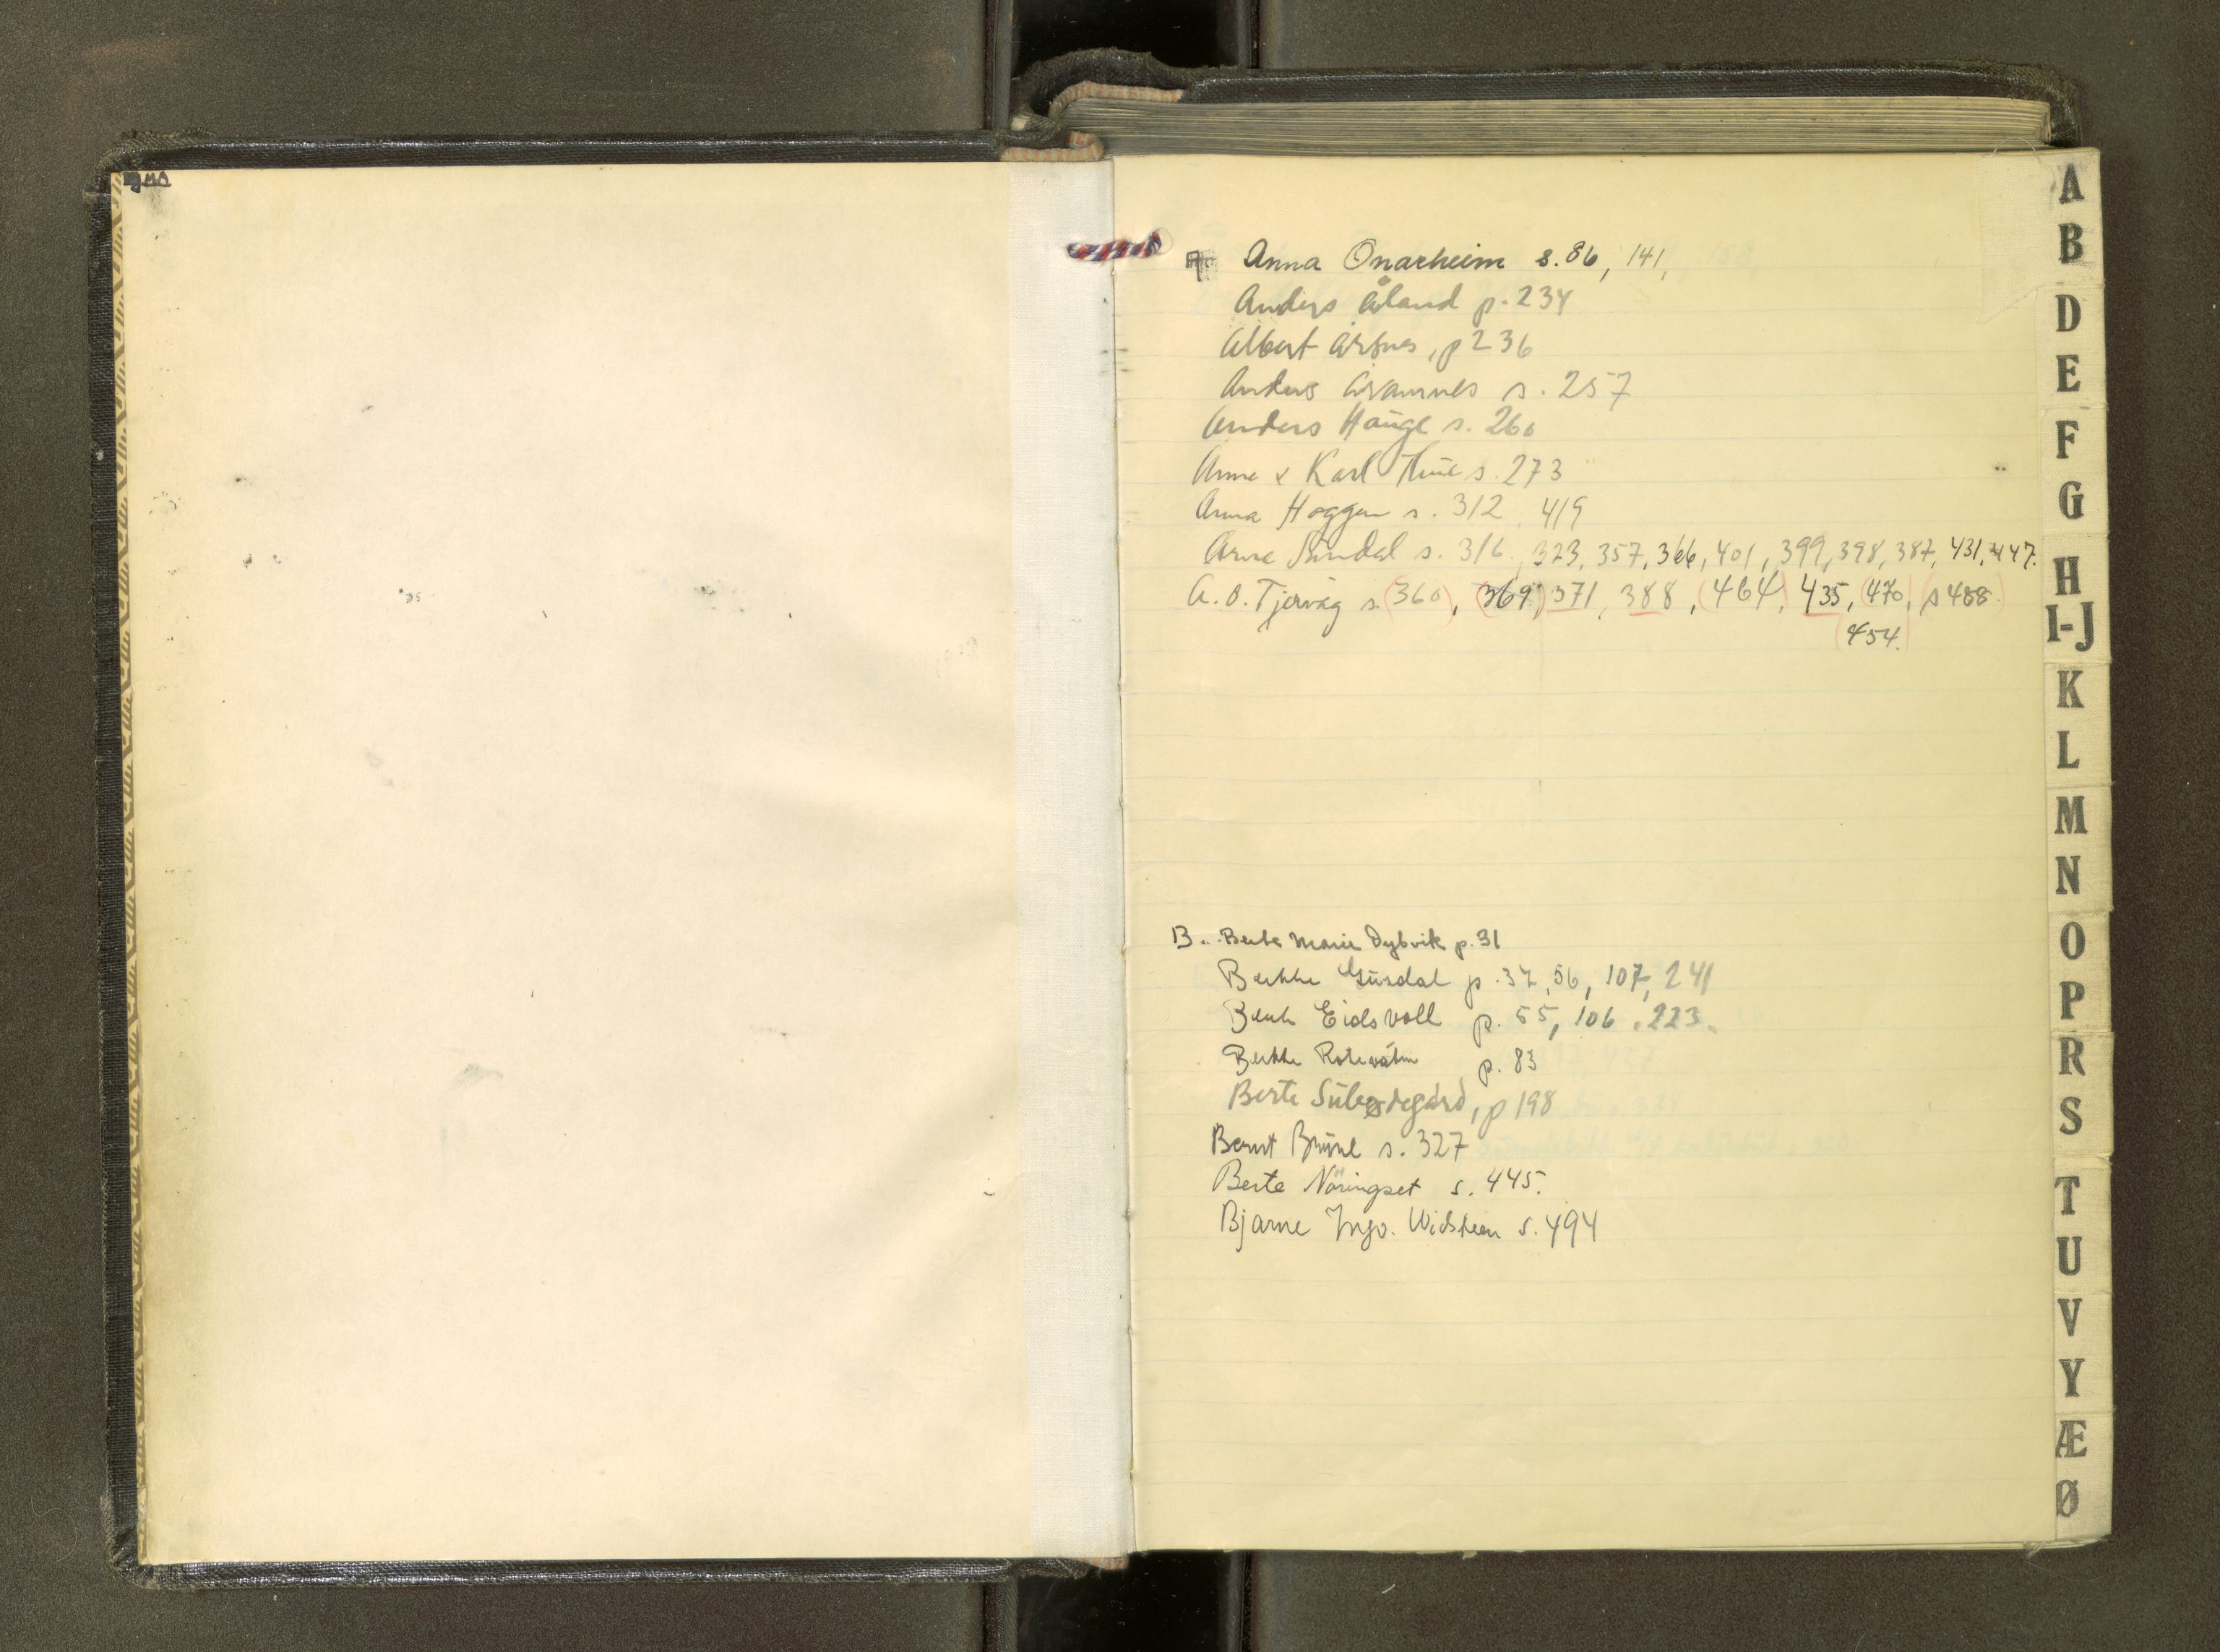 A Anna Onarheim s. 86, 141,
Anders Åland p. 234
Albert Årsnes, p 236
Anders s. 257
Anders Hauge s. 260
Anna & Karl s. 273
Anna Hoggen s. 312 419
Arne Sundal s. 316, 323, 357, 366, 401, 399, 398, 387, 431, 447.
A. O. Tjervåg s. (360), (369) 371, 388, (464), 435, (470, (s 488.)
(454.)
B. Berte Marie Dybvik p. 31
Berthe p. 37, 56, 107, 241
Berte Eidsvoll p. 55, 106, 223.
Berthe Rotevatn p. 83
Berte Sulegdegård, p 198
Bernt s. 327
Berte Nöringset s. 445.
Bjarne Ingv. Vidsteen s. 494
A
B
D
E
F
G
H
I-J
K
L
M
N
O
P
R
S
T
U
V
Y
Æ
Ø